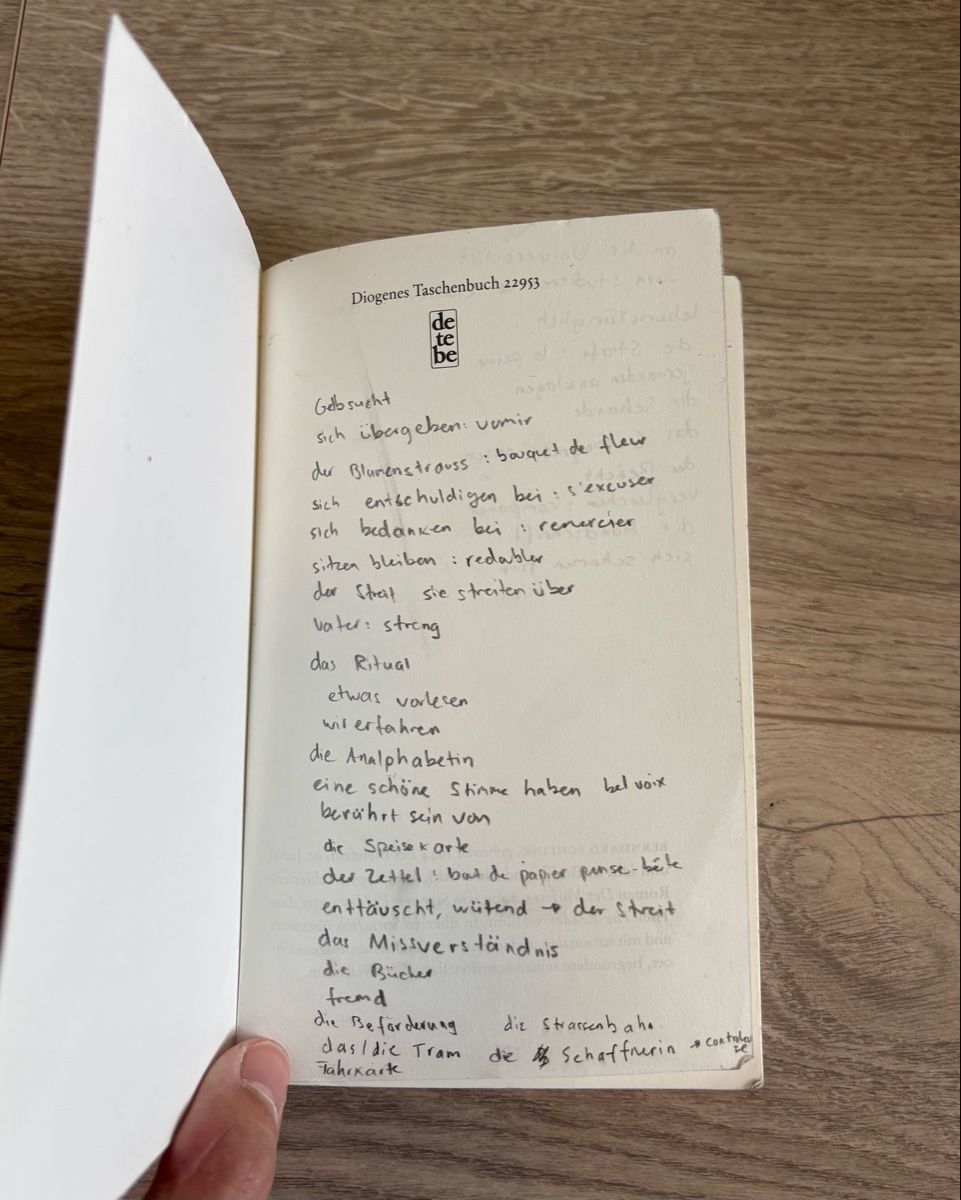 Diogenes Taschenbuch 22953
de
te
be
Gelbsucht
sich übergeben: vomir
der Blumenstrauss : bouquet de fleur
sich entschuldigen bei : s'excuser
sich bedanken bei : remercier
sitzen bleiben : redoubler
der Streit sie streiten über
Vater: streng
das Ritual
etwas vorlesen
wir erfahren
die Analphabetin
eine schöne Stimme haben bel voix
berührt sein von
die Speisekarte
der Zettel : bout de papier pense-bête
enttäuscht, wütend → der Streit
das Missverständnis
die Bücher
fremd
die Beförderung die Strassenbahn
das/die Tram die Schaffnerin →
Fahrkarte